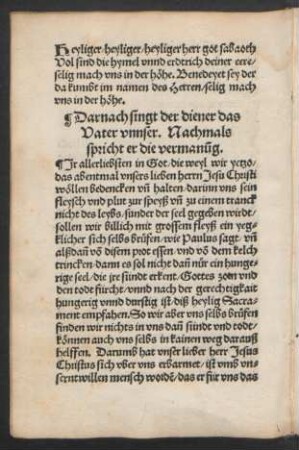 Heyliger heyliger/heyliger herr got sabaoth
Vol sind die hymel vnnd erdtrich deiner eere/
selig mach vns in der höhe. Benedeyet sey der
da kumbt im namen des Herren/selig mach
vns in der höhe.
¶Darnach singt der diener das
Vater vnnser. Nachmals
spricht er die vermanūg.
¶Ir allerliebsten in Got/die weyl wir yetzo/
das abentmal vnsers lieben herrn Jesu Christi
wöllen bedencken vñ halten/darinn vns sein
fleysch vnd plut zur speyß vñ zu einem tranck
nicht des leybs/sunder der seel gegeben wirdt/
sollen wir billich mit grossem fleyß ein yeg-
klicher sich selbs brüfen/wie Paulus sagt/vñ
alßdañ võ disem prot essen/vnd võ dem kelch
trincken/dann es sol nicht dañ nür ein hunge-
rige seel/die jre sünde erkent/Gottes zorn vnd
den todt fürcht/vnnd nach der gerechtigkait
hungerig vnnd durstig ist/diß heylig Sacra-
ment empfahen. So wir aber vns selbs brüfen
finden wir nichts in vns dañ sünde vnd todt/
können auch vns selbs in kainen weg darauß
helffen. Darumb hat vnser lieber herr Jesus
Christus sich vber vns erbarmet/ist vmb vn-
sernt willen mensch wordē/das er für vns das